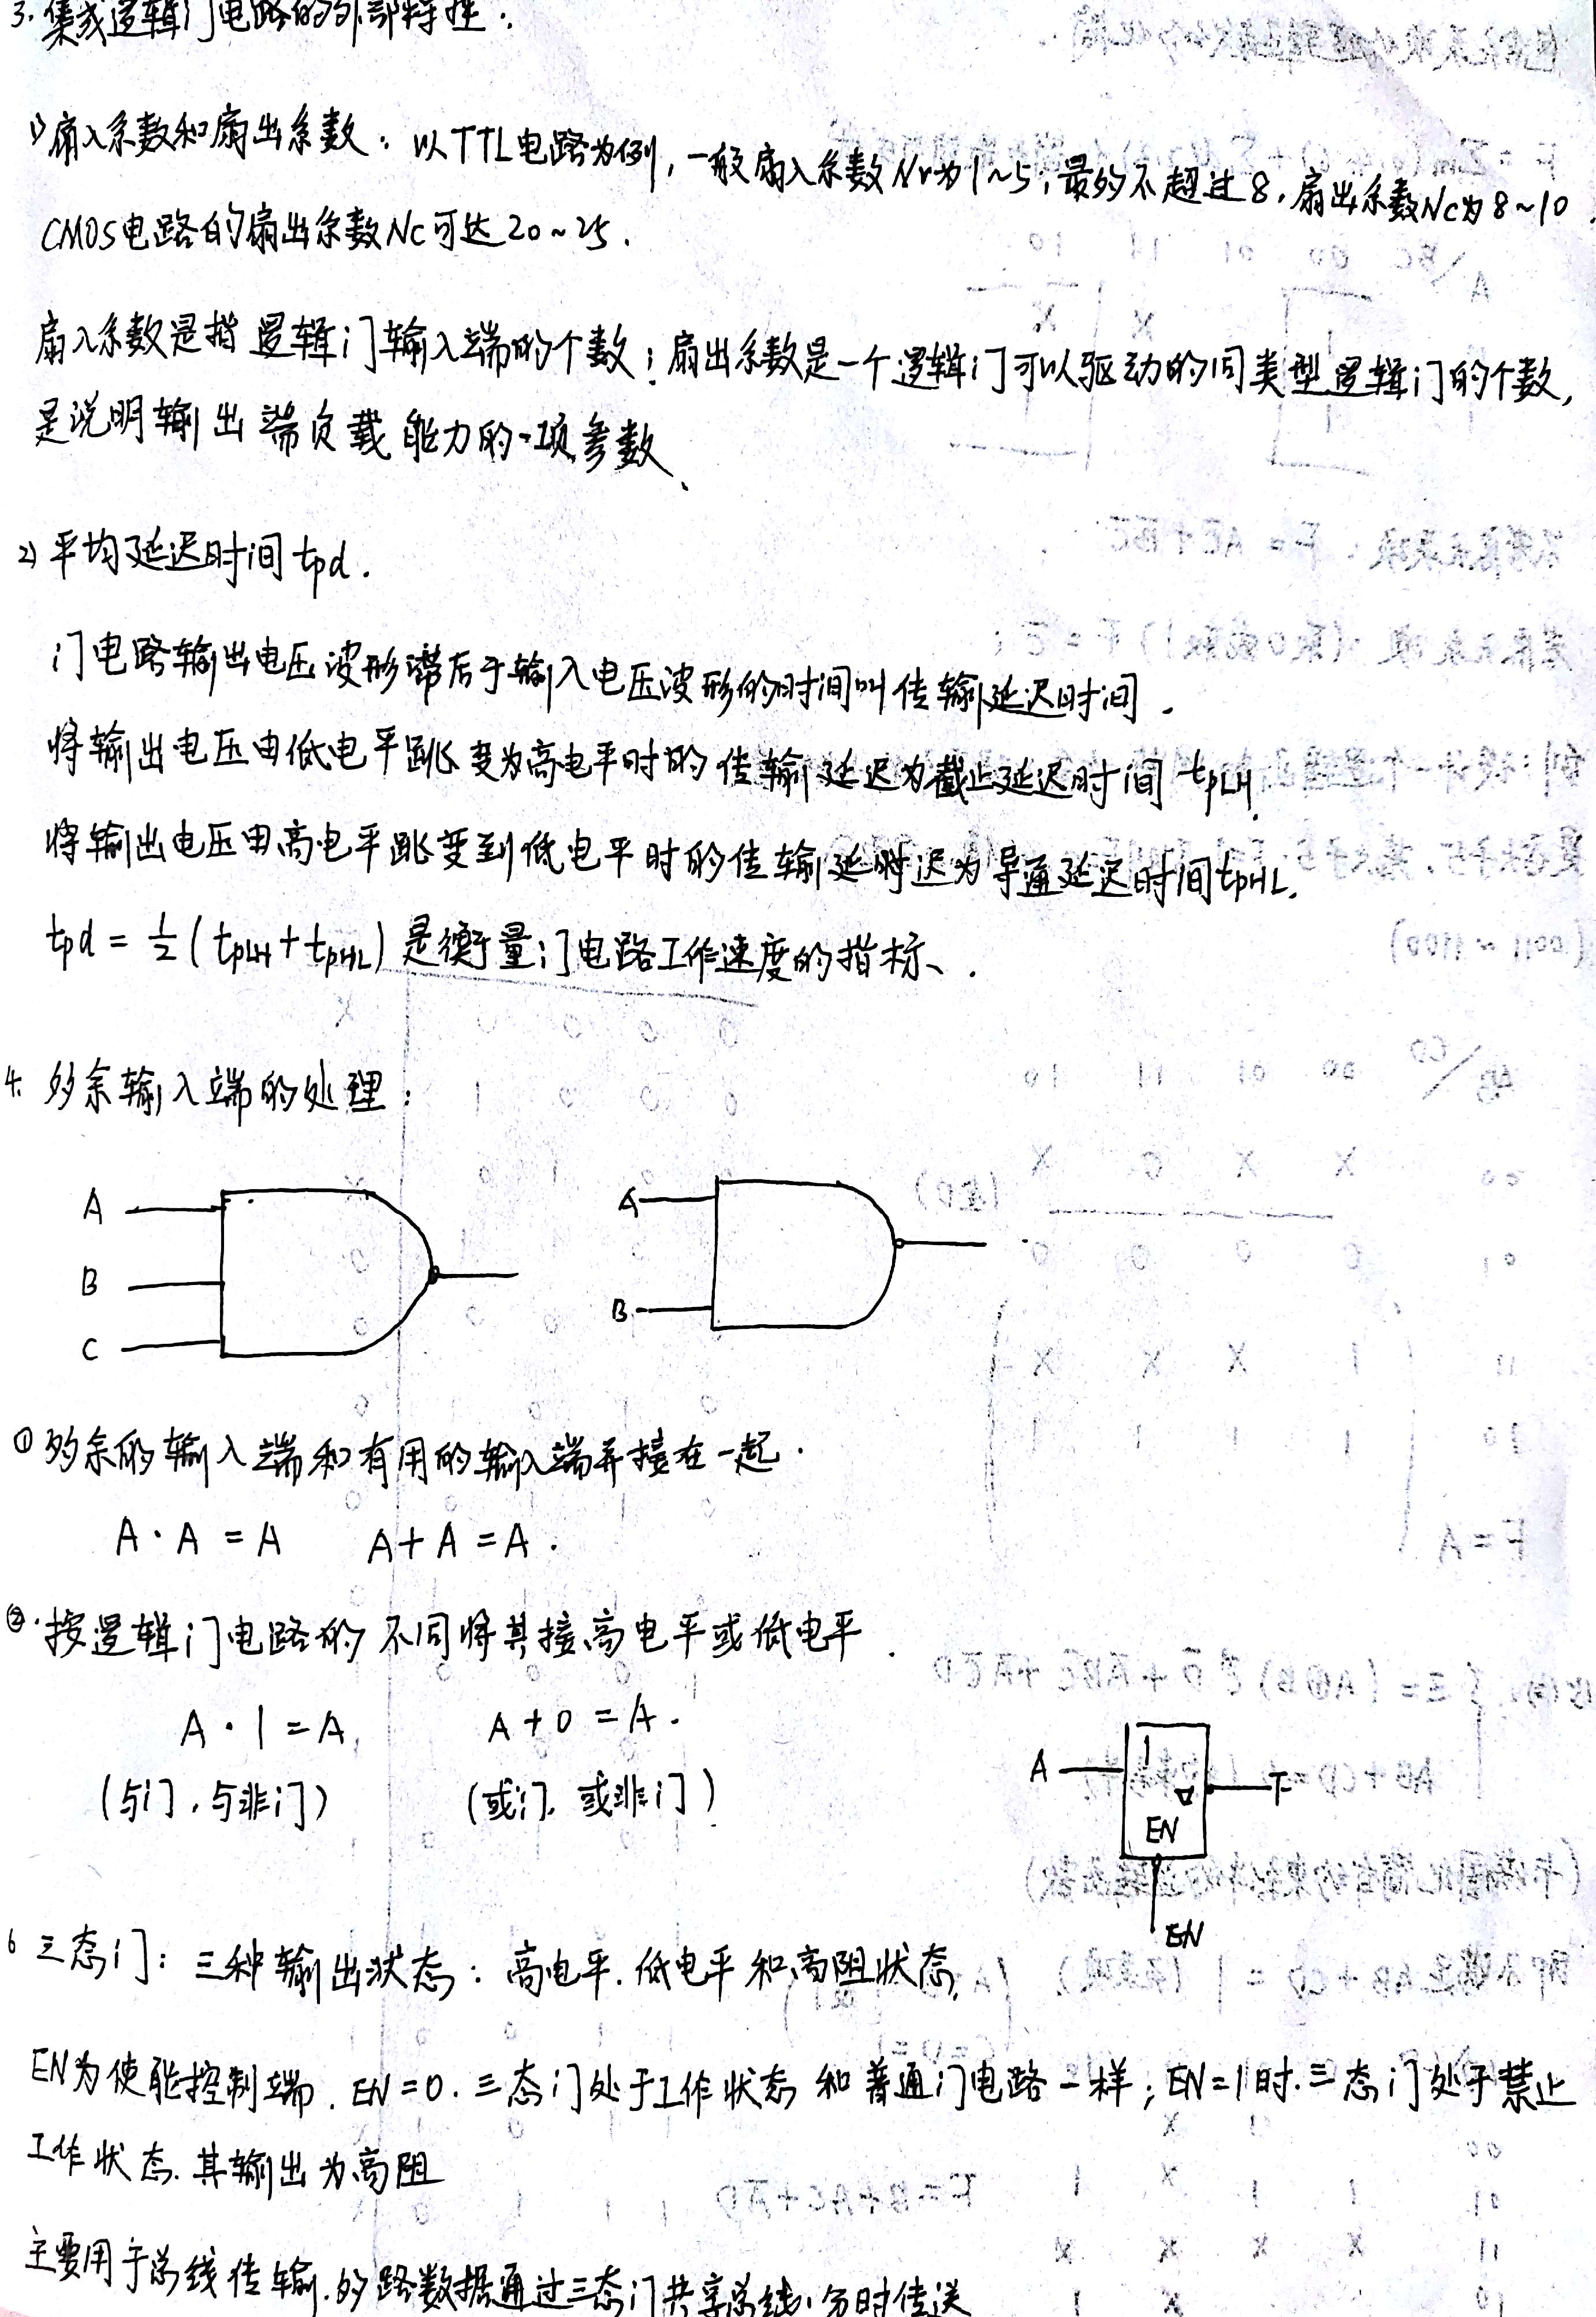 3. 集成逻辑门电路的外部特性：
1) 扇入系数和扇出系数：以TTL电路为例，一般扇入系数Nr为1~5，最多不超过8，扇出系数Nc为8~10.
CMOS电路的扇出系数Nc可达20~25.
扇入系数是指逻辑门输入端的个数；扇出系数是一个逻辑门可以驱动的同类型逻辑门的个数，
是说明输出端负载能力的一项参数、
2) 平均延迟时间tpd.
门电路输出电压波形滞后于输入电压波形的时间叫传输延迟时间.
将输出电压由低电平跳变为高电平时的传输延迟为截止延迟时间 tpLH.
将输出电压由高电平跳变到低电平时的传输延时迟为导通延迟时间tpHL.
tpd = 1/2 ( tpLH + tpHL ) 是衡量门电路工作速度的指标、.
4. 多余输入端的处理：
A
B
C
A
B
① 多余的输入端和有用的输入端并接在一起.
A · A = A A + A = A .
②. 按逻辑门电路的不同将其接高电平或低电平.
A · 1 = A, A + 0 = A.
(与门, 与非门) (或门, 或非门)
A 1 ▽ F
EN
EN
6 三态门：三种输出状态：高电平. 低电平和高阻状态,
EN为使能控制端. EN=0. 三态门处于工作状态和普通门电路一样；EN=1时. 三态门处于禁止
工作状态. 其输出为高阻
主要用于总线传输. 多路数据通过三态门共享总线, 分时传送